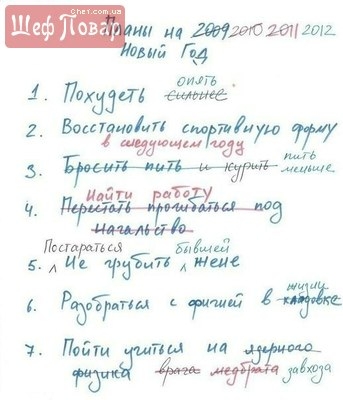 chef.com.ua
Шеф Повар
Планы на 2009 2010 2011 2012
Новый Год
опять
1. Похудеть сильнее
2. Восстановить спортивную форму
в следующем году
3. Бросить пить и курить пить меньше
Найти работу
4. Перестать прогибаться под
начальство
Постараться бывшей
5. Не грубить жене
жизни
6. Разобраться с фигней в кладовке
7. Пойти учиться на ядерного
физика врача медбрата завхоза